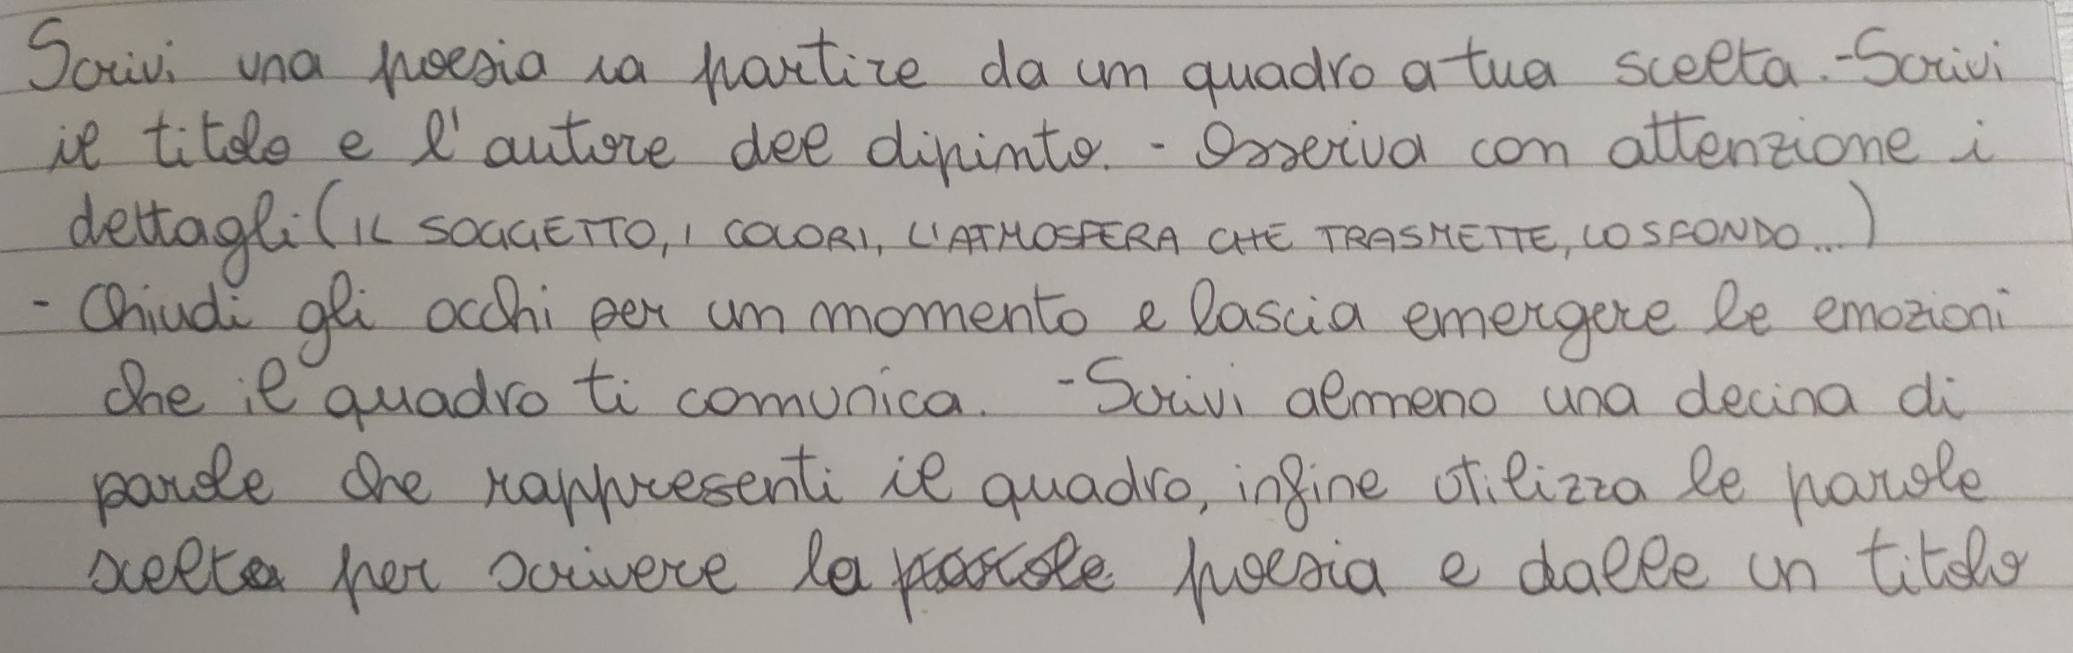 Scrivi una poesia a partire da un quadro a tua scelta. - Scrivi
il titolo e l'autore del dipinto. - Osserva con attenzione i
dettagli (IL SOGGETTO, I COLORI, L'ATMOSFERA CHE TRASMETTE, LO SFONDO...)
- Chiudi gli occhi per un momento e lascia emergere le emozioni
che il quadro ti comunica. - Scrivi almeno una decina di
parole che rappresenti il quadro, infine utilizza le parole
scelte per scrivere la poesia e dalle un titolo